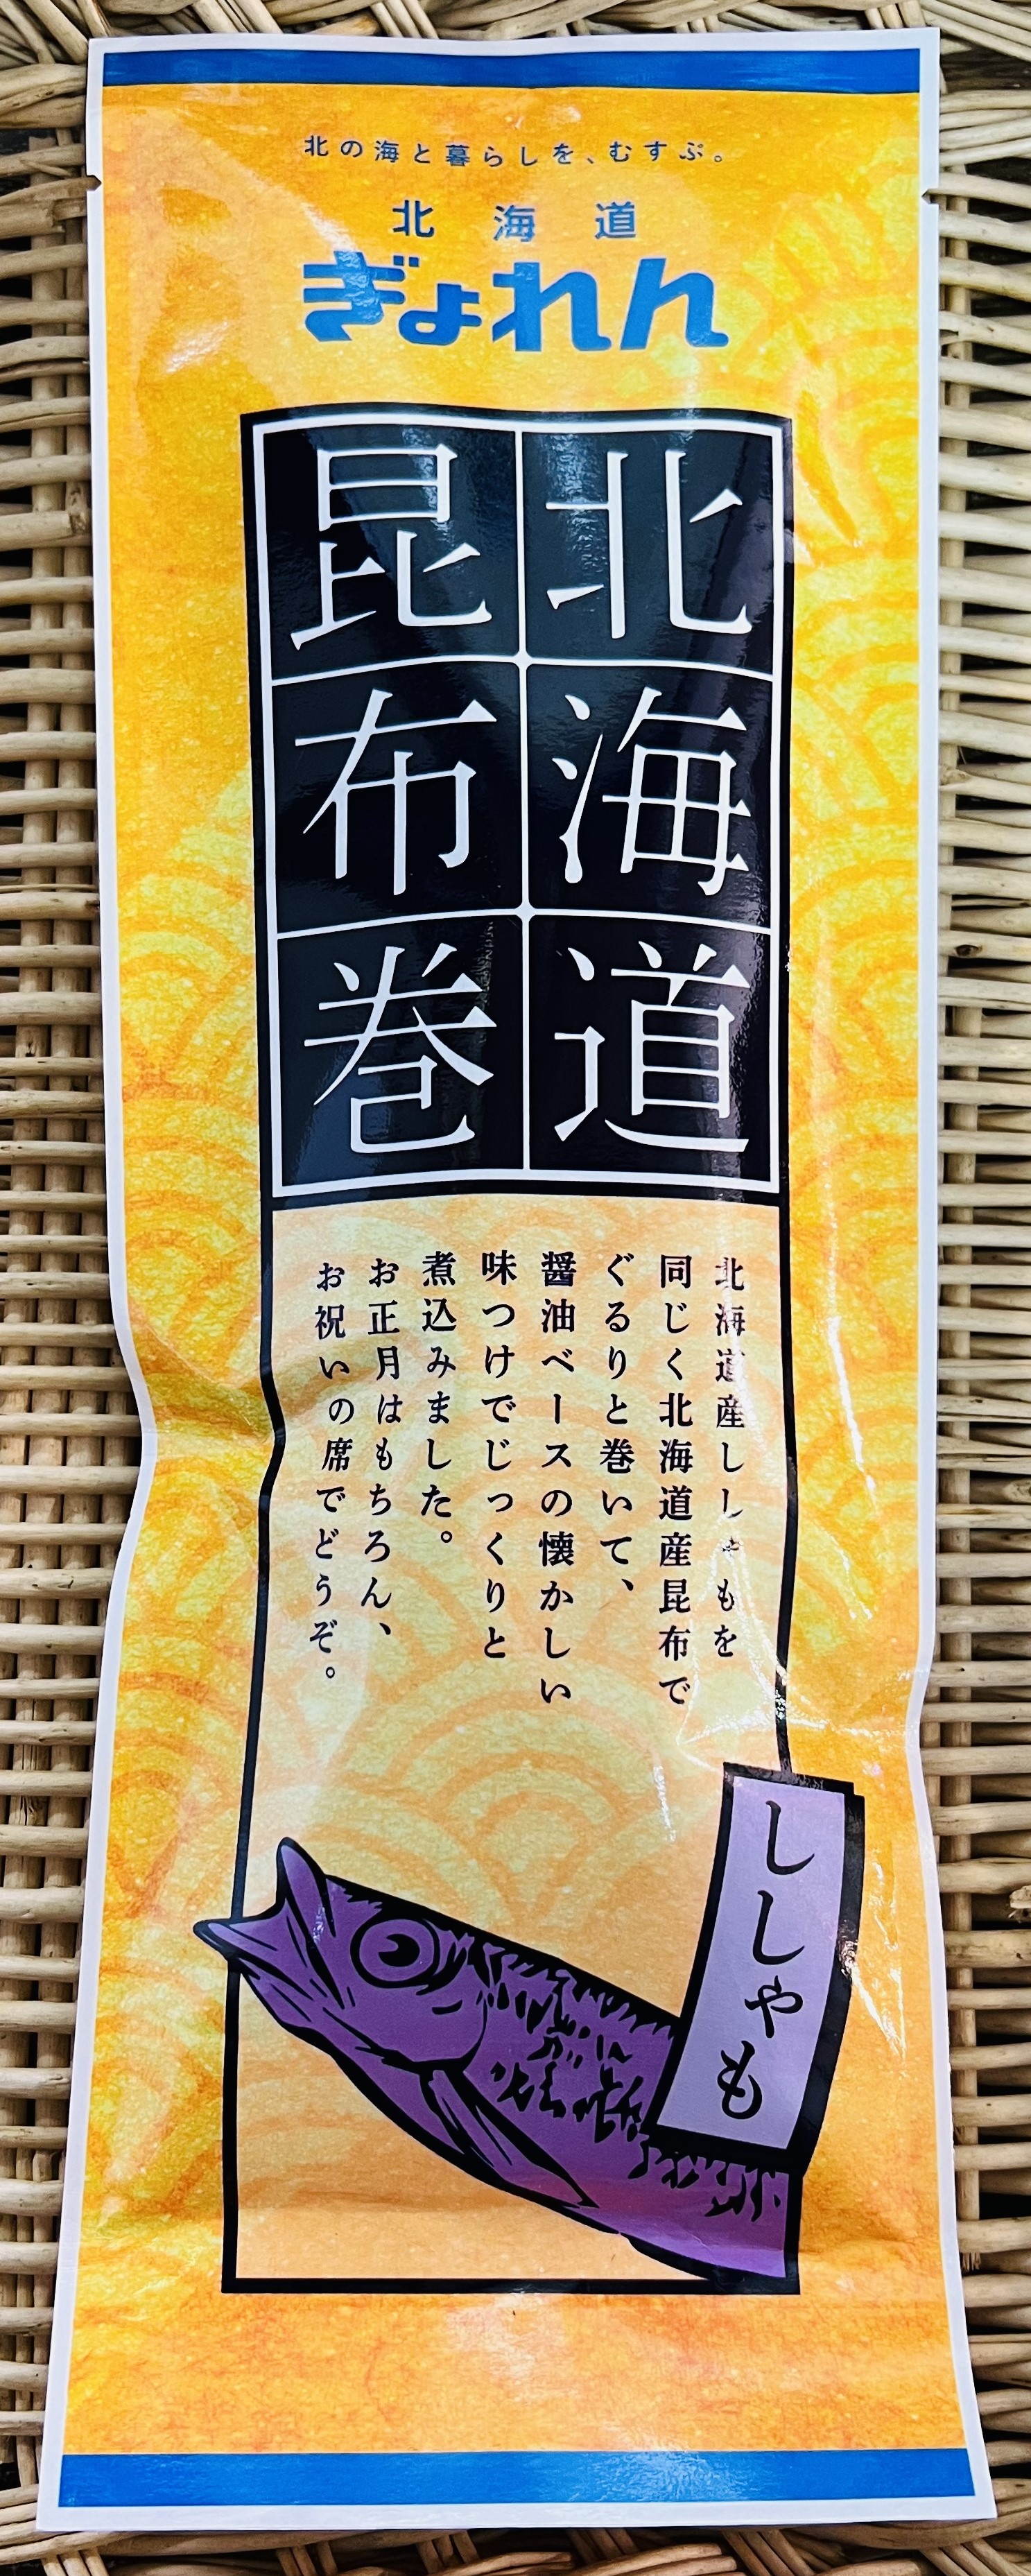 北の海と暮らしを、むすぶ。
北海道
ぎょれん
北海道
昆布巻
北海道産ししゃもを
同じく北海道産昆布で
ぐるりと巻いて、
醤油ベースの懐かしい
味つけでじっくりと
煮込みました。
お正月はもちろん、
お祝いの席でどうぞ。
ししゃも